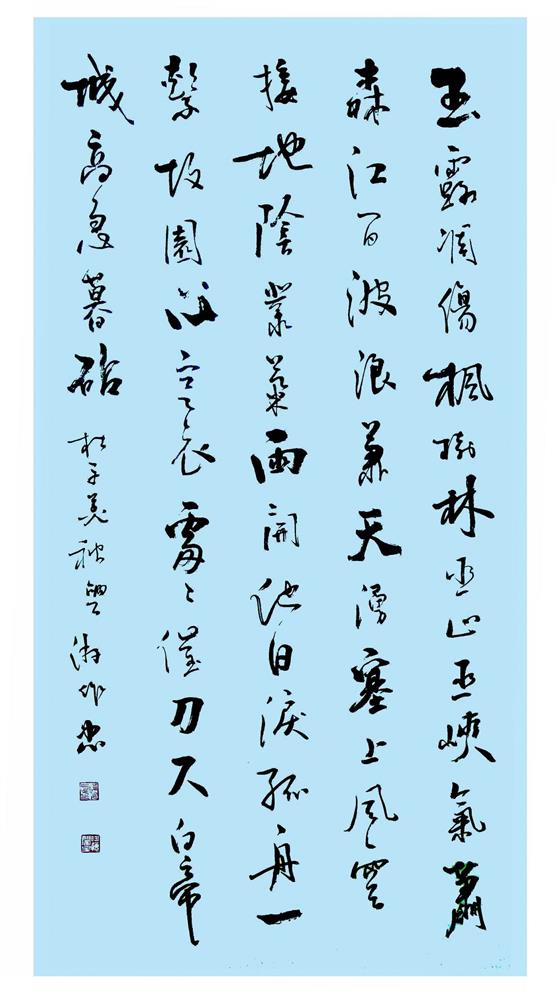 玉露凋傷楓樹林巫山巫峽氣蕭
森江間波浪兼天湧塞上風雲
接地陰叢菊兩開他日淚孤舟一
繫故園心寒衣處々催刀尺白帝
城高急暮砧
杜子美秋興